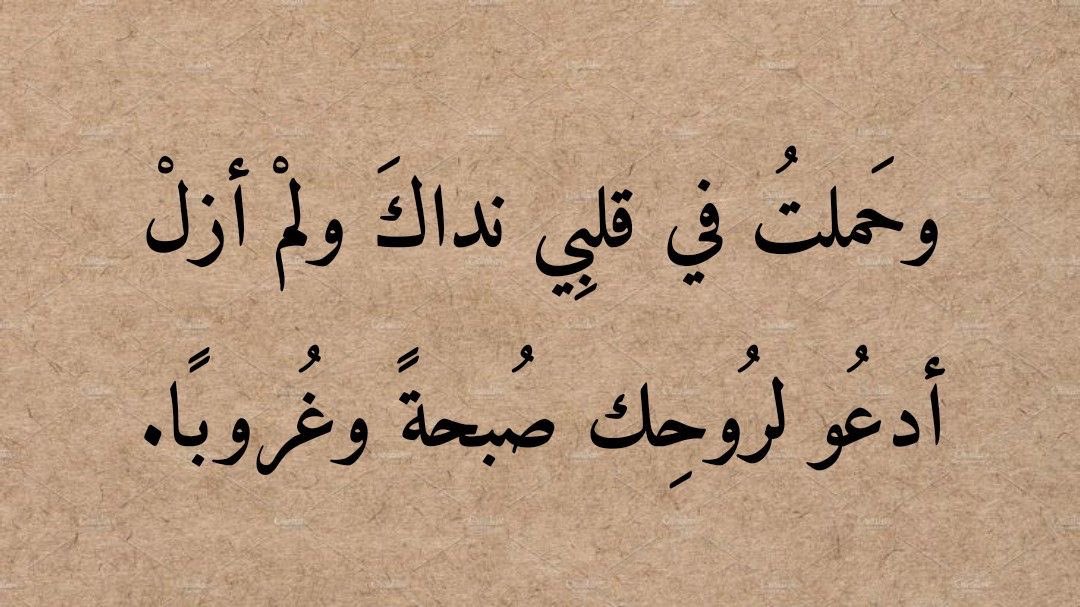 وحَملتُ في قلبِي نداكَ ولمْ أزلْ
أدعُو لرُوحِك صُبحةً وغُروبًا.